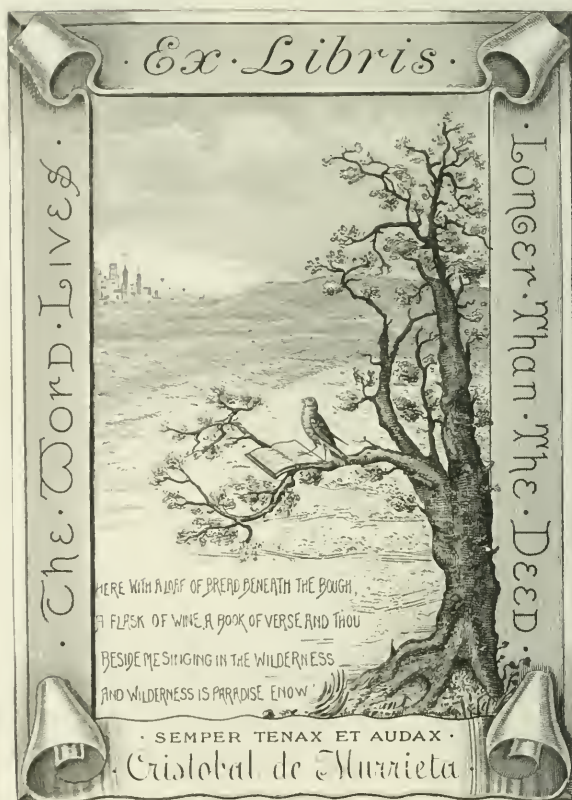 · Ex · Libris ·
· The · Word · Lives ·
· Longer · Than · The · Deed ·
HERE WITH A LOAF OF BREAD BENEATH THE BOUGH,
A FLASK OF WINE, A BOOK OF VERSE AND THOU
BESIDE ME SINGING IN THE WILDERNESS
AND WILDERNESS IS PARADISE ENOW
· SEMPER TENAX ET AUDAX ·
· Cristobal de Murrieta ·